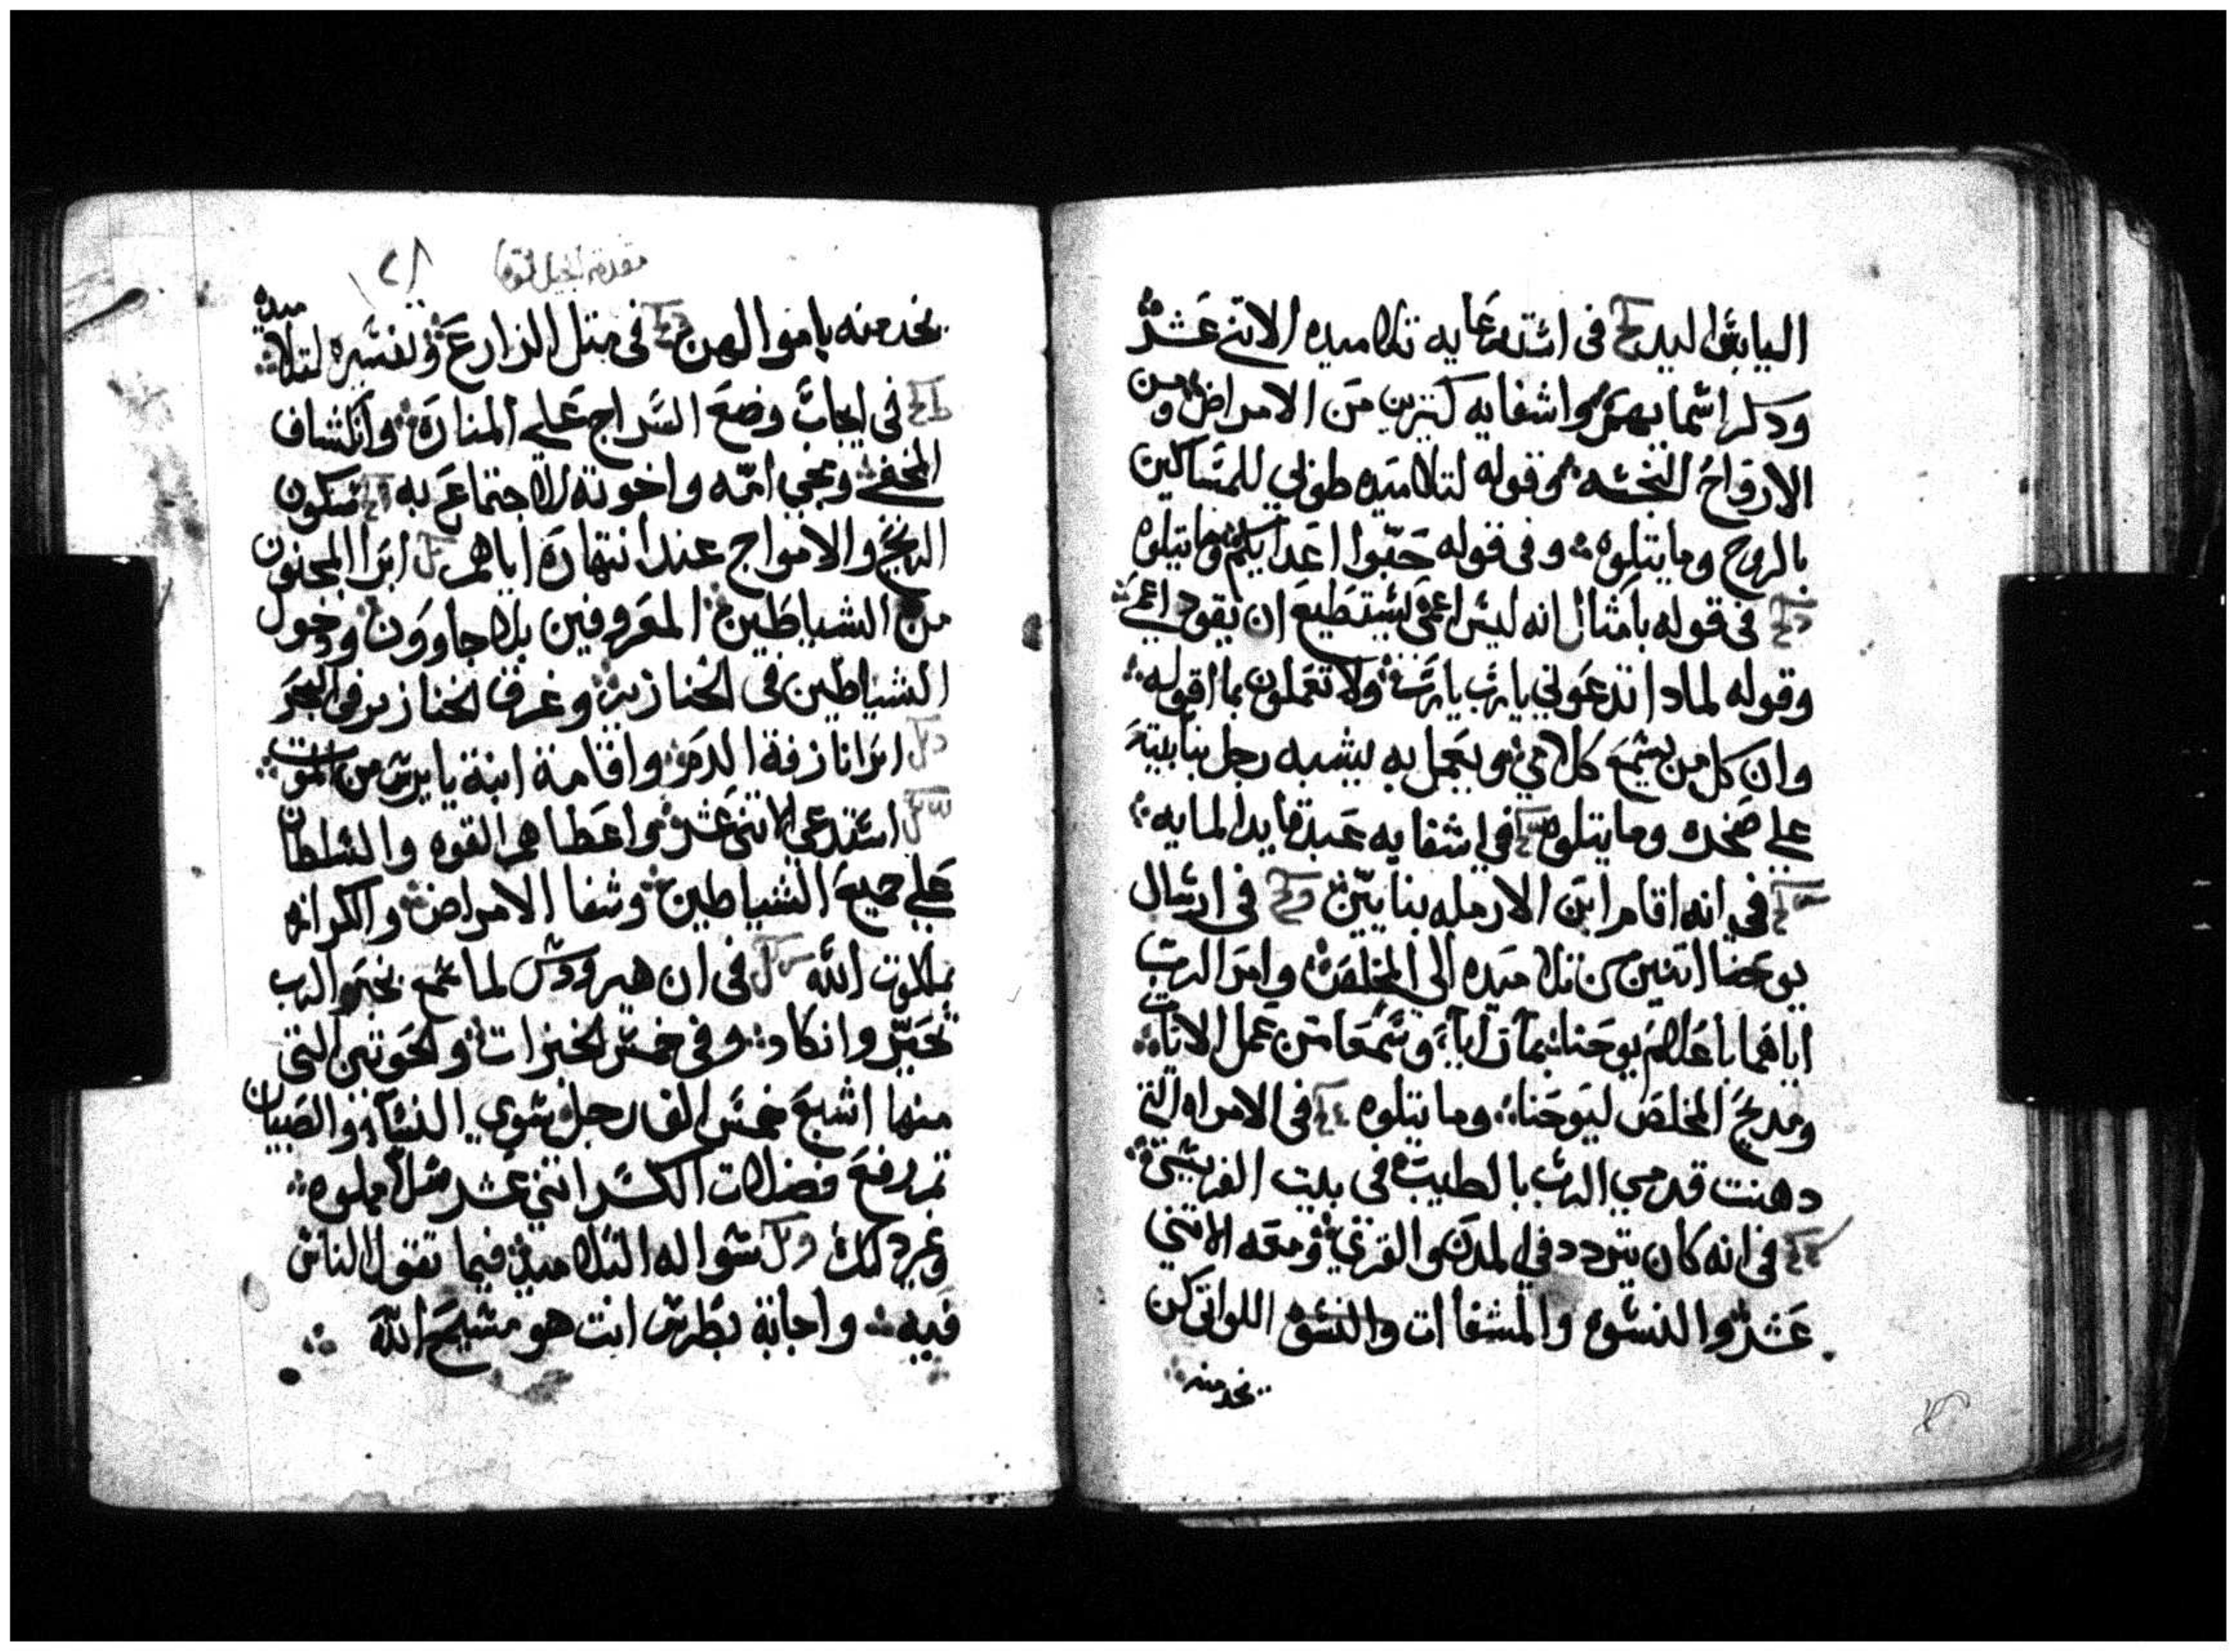 اليابس اليد في استدعايه تلاميده الاتني عشر
ودكر اسمايهم واشفايه كتيرين من الامراض ومن
الارواح النجسه وقوله لتلاميده طوبي للمساكين
بالروح وما يتلوه وفي قوله حبوا اعدايكم وما يتلوه
في قوله بامتال انه ليس اعمي يستطيع ان يقود اعمي
وقوله لمادا تدعوني يا رب يا رب ولا تعملون بما اقوله
وان كل من يسمع كلامي ويعمل به يشبه رجل بنا بيته
علي صخره وما يتلوه في اشفايه عبد قايد المايه
في انه اقام ابن الارمله بنايين في ارسال
يوحنا اتنين من تلاميده الي المخلص وامر الرب
اياهما باعلام يوحنا بما رايا وسمعا من عمل الايات
ومديح المخلص ليوحنا وما يتلوه في الامراه التي
دهنت قدمي الرب بالطيب في بيت الفريسي
في انه كان يتردد في المدن والقري ومعه الاتني
عشر والنسوه والمشفاات والنسوه اللواتي كن
يخدمنه
مقدمة انجيل لوقا
يخدمنه باموالهن في متل الزارع وتفسيره لتلاميده
في ايجاب وضع السراج علي المناره وانكشاف
المخفي ومجي امه واخوته للاجتماع به سكون
الريح والامواج عند انتهاره اياهم ابرا المجنون
من الشياطين المعروفين بلاجاوون ودخول
الشياطين في الخنازير وغرق الخنازير في البحر
ابرا نازفة الدم واقامة ابنة يايرس من الموت
استدعي الاتني عشر واعطاهم القوه والسلطان
علي جميع الشياطين وشفا الامراض والكرازه
بملكوت الله في ان هيرودس لما سمع بخبر الرب
تحير وانكاد وفي خمس الخبزات والحوتين التي
منها اشبع خمس الف رجل سوي النسا والصبيان
تم رفع فضلات الكسر اتني عشر سلا مملوه
وغير دلك سواله التلاميد فيما تقول الناس
فيه واجابة بطرس انت هو مسيح الله